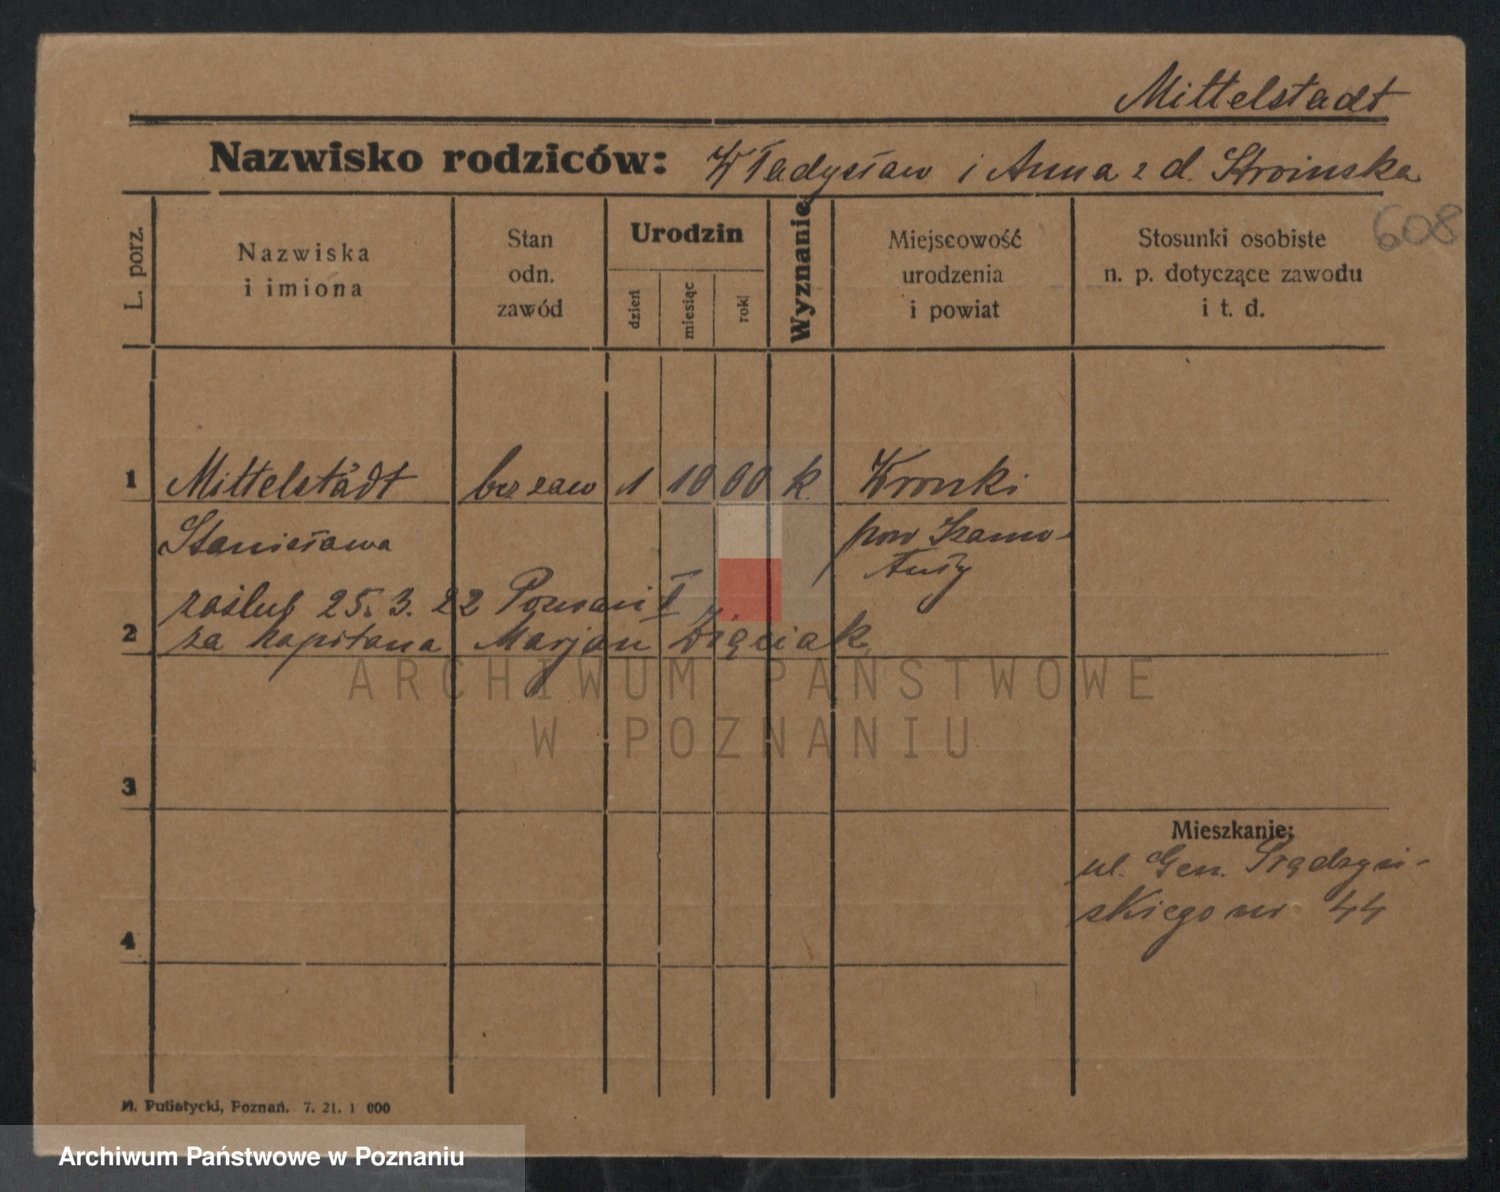 Mittelstadt
Nazwisko rodziców: Władysław i Anna z d. Stroinska
608
L. porz.
Nazwiska
i imiona
Stan
odn.
zawód
Urodzin
dzień
miesiąc
rok
Wyznanie
Miejscowość
urodzenia
i powiat
Stosunki osobiste
n. p. dotyczące zawodu
i t. d.
1 Mittelstädt bez zaw 1 10 00 k. Wronki
Stanisława pow Szamo-
tuły
zaślub 25. 3. 22 Poznań I
2 za kapitana Marjan
ARCHIWUM PAŃSTWOWE
W POZNANIU
3
Mieszkanie:
ul. Gen. Prądzyń-
skiego nr 44
4
M. Putiatycki, Poznań. 7. 21. 1 000
Archiwum Państwowe w Poznaniu